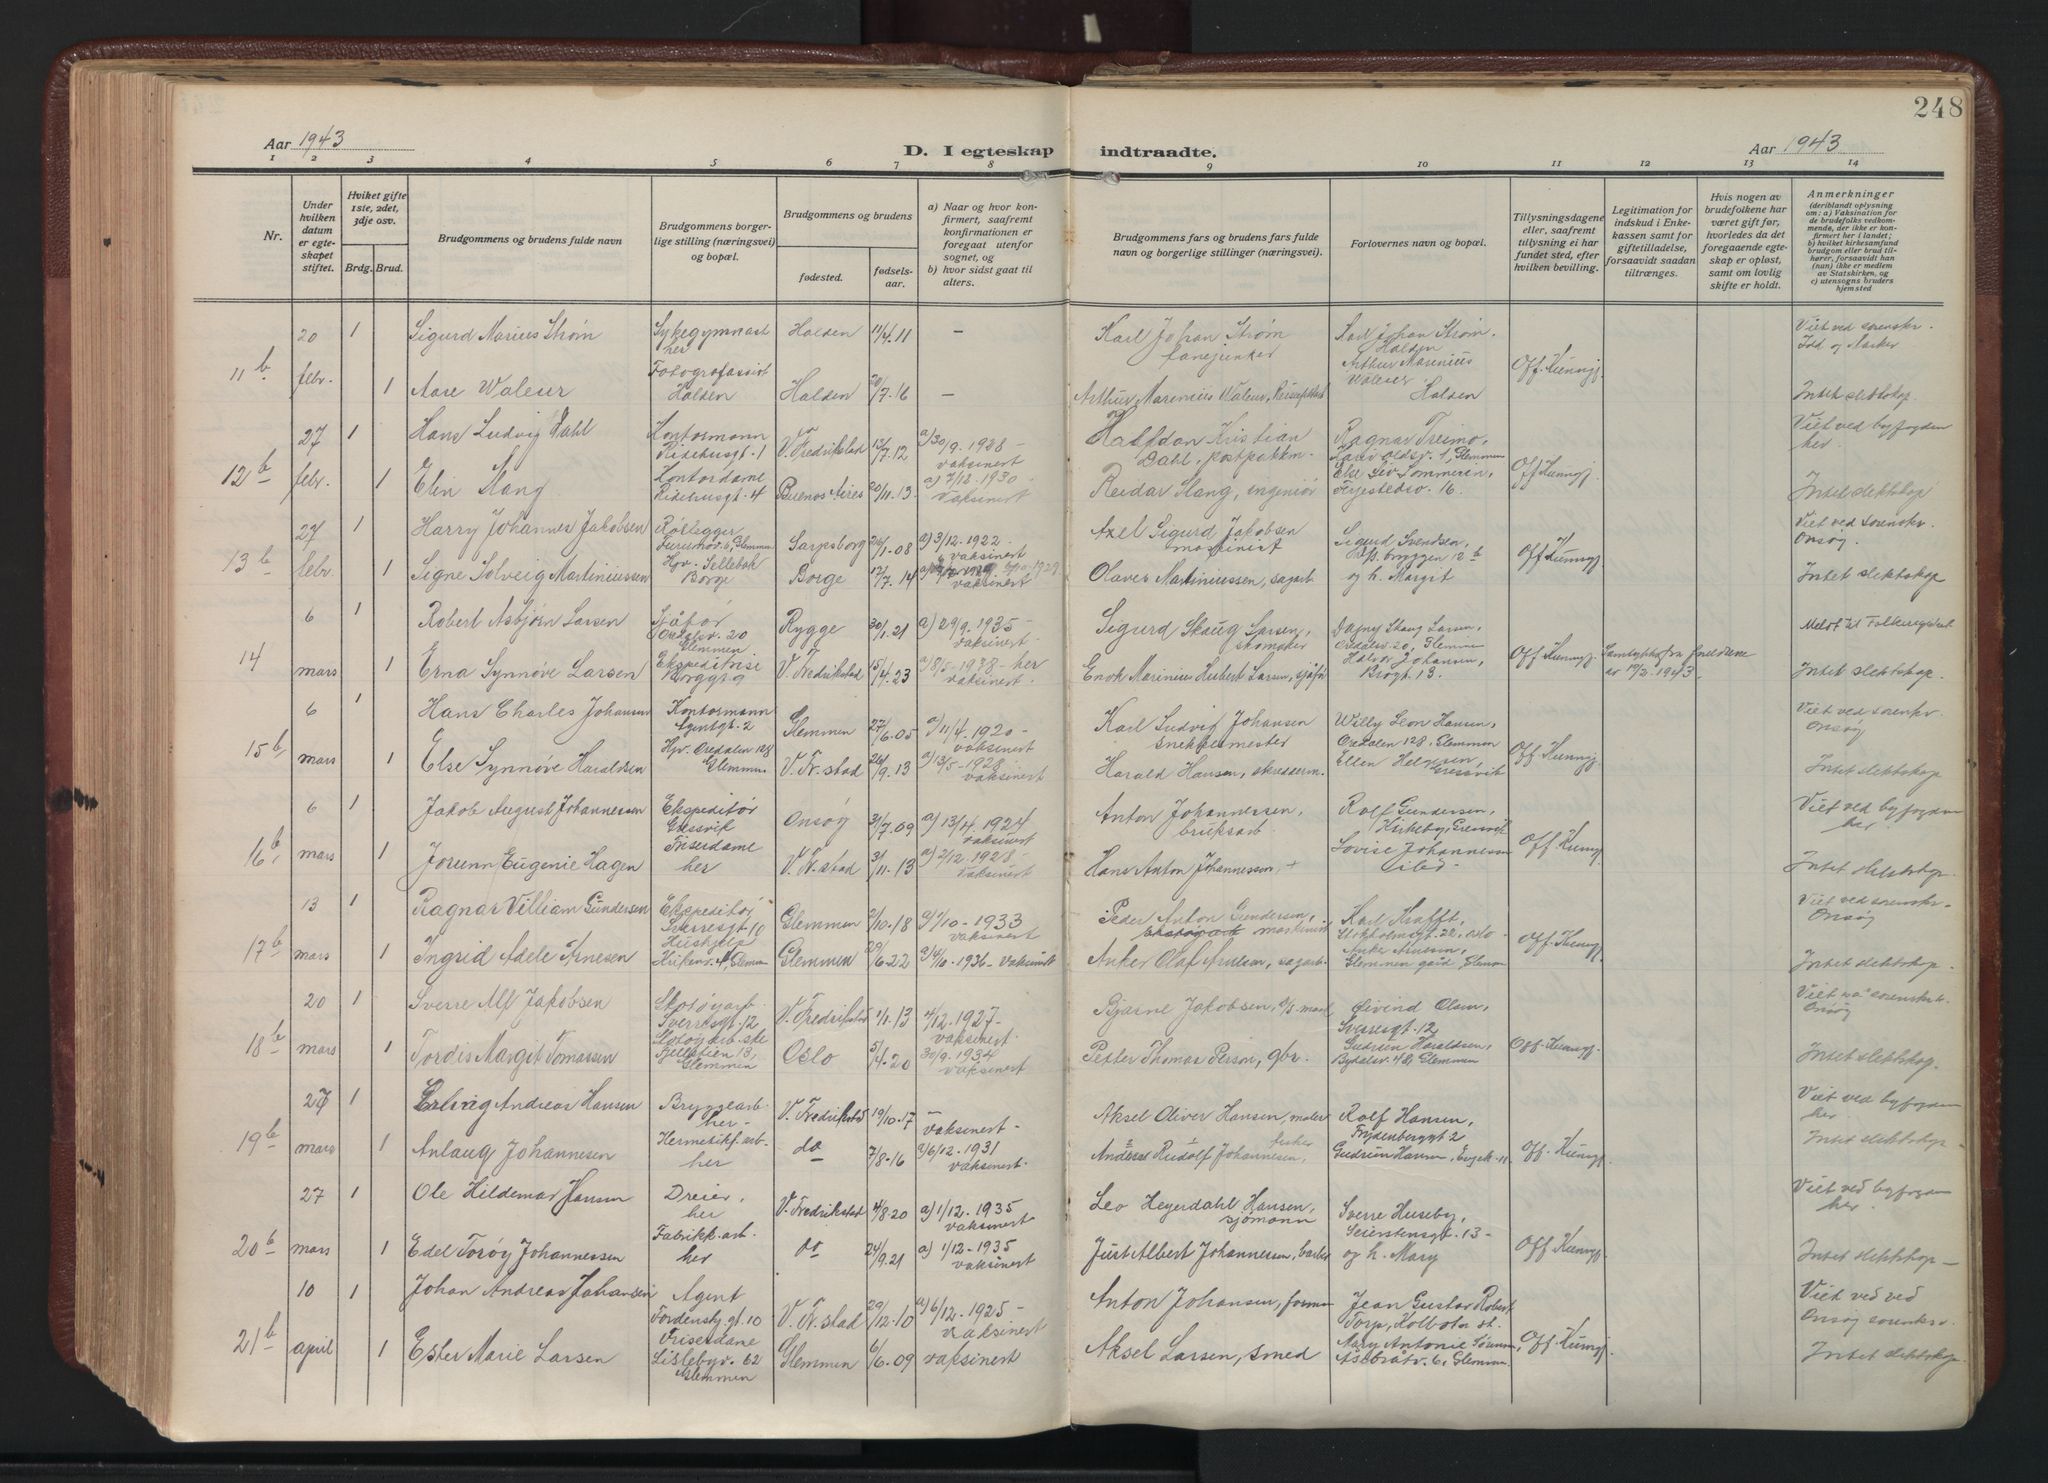 248
Aar 1943
D. I egteskap indtraadte.
Aar 1943
1 2 3 4 5 6 7 8 9 10 11 12 13 14
Nr.
Under hvilken datum er egteskapet stiftet.
Hviket gifte 1ste, 2det, 3dje osv.
Brdg. Brud.
Brudgommens og brudens fulde navn
Brudgommens borgerlige stilling (næringsvei) og bopæl.
Brudgommens og brudens
fødested.
fødselsaar.
a) Naar og hvor konfirmert, saafremt konfirmationen er foregaat utenfor sognet, og
b) hvor sidst gaat til alters.
Brudgommens fars og brudens fars fulde navn og borgerlige stillinger (næringsvei).
Forlovernes navn og bopæl.
Tillysningsdagene eller, saafremt tillysning ei har fundet sted, efter hvilken bevilling.
Legitimation for indskud i Enkekassen samt for giftetilladelse, forsaavidt saadan tiltrænges.
Hvis nogen av brudefolkene har været gift før, hvorledes da det foregaaende egteskap er opløst, samt om lovlig skifte er holdt.
Anmerkninger (deriblandt oplysning om: a) Vaksination for de brudefolks vedkommende, der ikke er konfirmert her i landet; b) hvilket kirkesamfund brudgom eller brud tilhører, forsaavidt han (hun) ikke er medlem av Statskirken, og c) utensogns bruders hjemsted
11 b 20 febr. 1 Sigurd Marius Strøm Sykegymnast her Halden 11/4.11 – Karl Johan Strøm fanejunker Karl Johan Strøm, Halden Off. Kunngj. Viet ved sorenskr. Idd og Marker
1 Aase Waleur Halden Halden 20/7.16 – Arthur Marenius Waleur, Arthur Marenius Waleur Halden Intet slektskap.
12 b 27 febr. 1 Hans Ludvig Dahl Kontormann Ridehusgt. 1 V. Fredrikstad 13/7.12 a) 30/9.1928 – vaksinert Halfdan Kristian Dahl, postpakkm. Ragnar Treimo, Off. Kunngj. Viet ved byfogden her.
1 Elin Stang Kontordame Ridehusgt. 4 Buenos Aires 20/11.13 a) 7/12.1930 – vaksinert Reidar Stang, ingeniør 16. Intet slektskap
13 b 27 febr. 1 Harry Johannes Jakobsen Rørlegger Glemmen Sarpsborg 26/1.08 a) 3/12.1922 – vaksinert Axel Sigurd Jakobsen maskinist Sigurd Svendsen, bryggen 12 b Off. Kunngj. Viet ved sorenskr. Onsøy
1 Signe Solveig Martiniussen Hjv. Sellebak Borge Borge 12/7.14 1929 vaksinert Olaves Martiniussen, sagarb. og h. Margit Intet slektskap
14 6 mars 1 Robert Asbjørn Larsen Sjåfør Oredalsv. 20 Glemmen Rygge 30/1.21 a) 29/9.1935 – vaksinert Sigurd Skaug Larsen, skomaker Dagny Skaug Larsen, Oredalsv. 20, Glemmen Off. Kunngj. Samtykke fra foreldrene av 19/2.1943. Meldt til Folkeregistret
1 Erna Synnøve Larsen Ekspeditrise Borggt. 9 V. Fredrikstad 15/4.23 a) 8/5.1938 – her vaksinert. Enok Marinius Hubert Larsen, sjåfø Halvor Johansen, Brogt. 13. Intet slektskap.
15 b 6 mars 1 Hans Charles Johansen Kontormann Agentgt. 2 Glemmen 27/6.05 a) 11/4.1920 – vaksinert Karl Ludvig Johansen snekkermester Willy Leon Hansen, Oredalen 128, Glemmen Off. Kunngj. Viet ved sorenskr. Onsøy
1 Else Synnøve Haraldsen Hjv. Oredalen 128 Glemmen V. Fr. stad 26/9.13 a) 13/5.1928 – vaksinert Harald Hansen, skredderm. Ellen Helgesen, Gressvik Intet slektskap
16 b 6 mars 1 Jakob August Johannessen Ekspeditør Gressvik Onsøy 31/7.09 a) 13/4.1924 vaksinert Anton Johannessen, bruksarb. Rolf Gundersen, Kirkeby, Gressvik Off. Kunngj. Viet ved byfogden her.
1 Jorunn Eugenie Hagen Friserdame her V. Fr. stad 3/11.13 a) 2/12.1928 – vaksinert Hans Anton Johannessen, + Lovise Johannessen Intet slektskap.
17 b 13 mars 1 Ragnar Villiam Gundersen Ekspeditør Sverresgt. 10 Glemmen 2/10.18 a) 1/10 – 1933 vaksinert Peder Anton Gundersen, maskinist Karl Krafft, Stokholmsgt. 22, Oslo Off. Kunngj. Viet ved sorenskr. Onsøy
1 Ingrid Adele Arnesen Hushjelp Glemmen Glemmen 29/6.22 a) 4/10.1936 – vaksinert Anker Olaf Arnesen, sagarb. Anker Arnesen, Glemmen gård, Glemm Intet slektskap.
18 b 20 mars 1 Sverre Alf Jakobsen Skotøyarb. Sverresgt. 12 V. Fredrikstad 1/1.13 4/12.1927 – vaksinert. Bjarne Jakobsen, Øivind Olsen, Sverresgt. 12 Off. Kunngj. Viet ved sorenskr. Onsøy
1 Tordis Margit Tomassen Skotøyarb.ske Fjelletien 13, Glemmen Oslo 5/4.20 30/9.1934 vaksinert Petter Thomas Person, gbr. Gudrun Haraldsen, Bydalsv. 42, Glemmen Intet slektskap.
19 b 27 mars 1 Erling Andreas Hansen Bryggearb. her. V. Fredrikstad 19/10.17 – vaksinert – Aksel Oliver Hansen, maler Rolf Hansen, Frydenberggt 2 Off. Kunngj. Viet ved byfogden her.
1 Anlaug Johannesen Hermetikf.arb. her do 7/8.16 a) 6/12.1931 vaksinert. Andreas Rudolf Johannesen, fisker Gudrun Hansen, Intet slektskap –
20 b 27 mars 1 Ole Hildemar Hansen Dreier, her V. Fredrikstad 4/8.20 a) 1/12.1935 vaksinert. Leo Heyerdahl Hansen, sjömann Sverre Huseby, Seierstensgt. 13 – Off. Kunngj. Viet ved byfogden her.
1 Edel Torøy Johannessen Fabrikk.arb. her do 24/9.21 a) 1/12.1935 vaksinert Just Albert Johannessen, og h. Mary Intet slektskap –
21 b 10 april 1 Johan Andreas Johansen Agent Tordenskj.gt. 10 V. Fr. stad 29/12.10 a) 6/12.1925 – vaksinert Anton Johansen, formm Jean Gustav Robert Torp, Kolbotn st. Off. Kunngj. Viet ved ved Onsøy sorenskr.
1 Ester Marie Larsen Friserdame Lislebyv. 62 Glemmen Glemmen 6/6.09 vaksinert Aksel Larsen, smed Mary Antonie 6, Glemm. Intet slektskap.